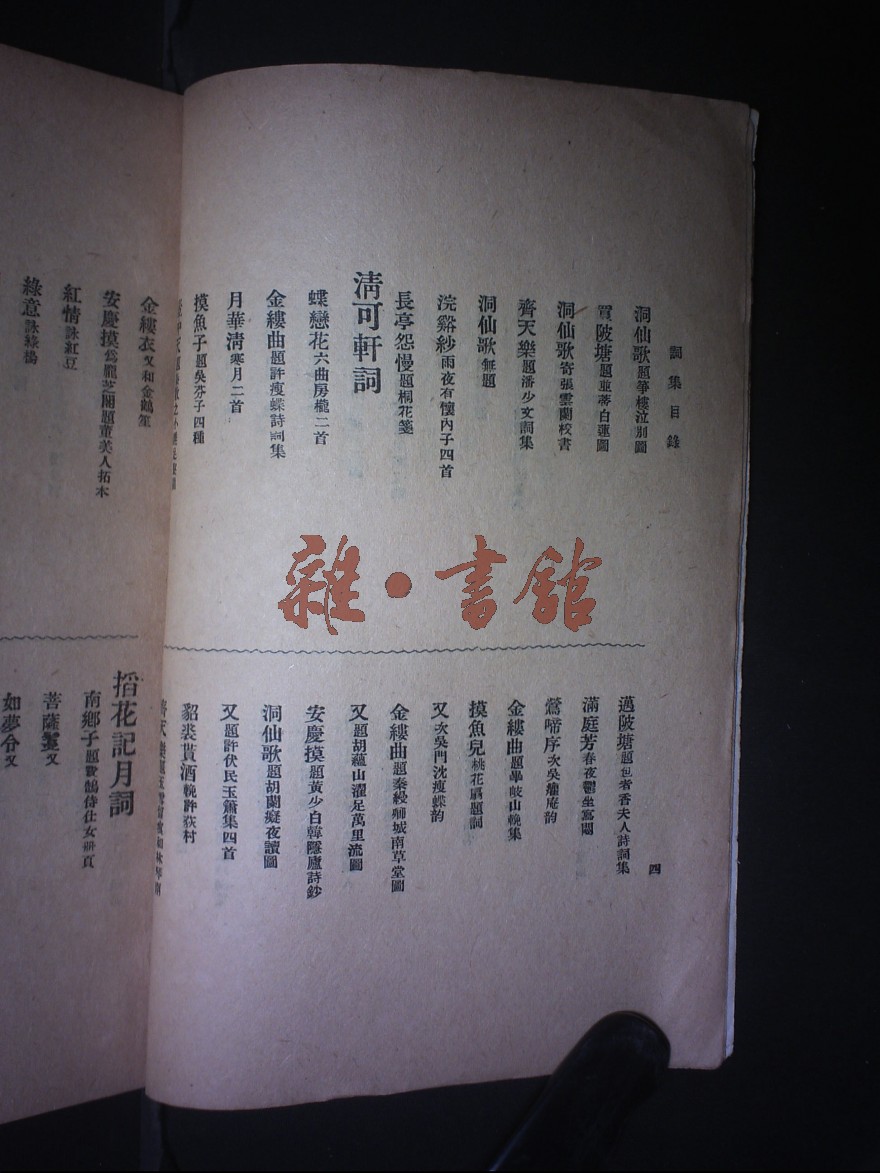 詞集目錄
洞仙歌題箏樓泣別圖
買陂塘題並蒂白蓮圖
洞仙歌寄張雲蘭校書
齊天樂題潘少文詞集
洞仙歌無題
浣谿紗雨夜有懷內子四首
長亭怨慢題桐花箋
清可軒詞
蝶戀花六曲房櫳二首
金縷曲題許瘦蝶詩詞集
月華清寒月二首
摸魚子題吳芬子四種
邁陂塘題包者香夫人詩詞集
滿庭芳春夜鬱坐寫悶
鶯啼序次吳癯庵韵
金縷曲題畢岐山輓集
摸魚兒桃花扇題詞
又次吳門沈瘦蝶韵
金縷曲題秦綬卿城南草堂圖
又題胡蘊山濯足萬里流圖
安慶摸題黃少白韓隱廬詩鈔
洞仙歌題胡蘭癡夜讀圖
又題許伏民玉簫集四首
貂裘貰酒輓許荻村
四
雜·書館
金縷衣又和金鶴笙
安慶摸為龐芝閣題董美人拓本
紅情詠紅豆
綠意詠綠
搯花記月詞
南鄉子題費鶴侍仕女冊頁
菩薩蠻又
如夢令又